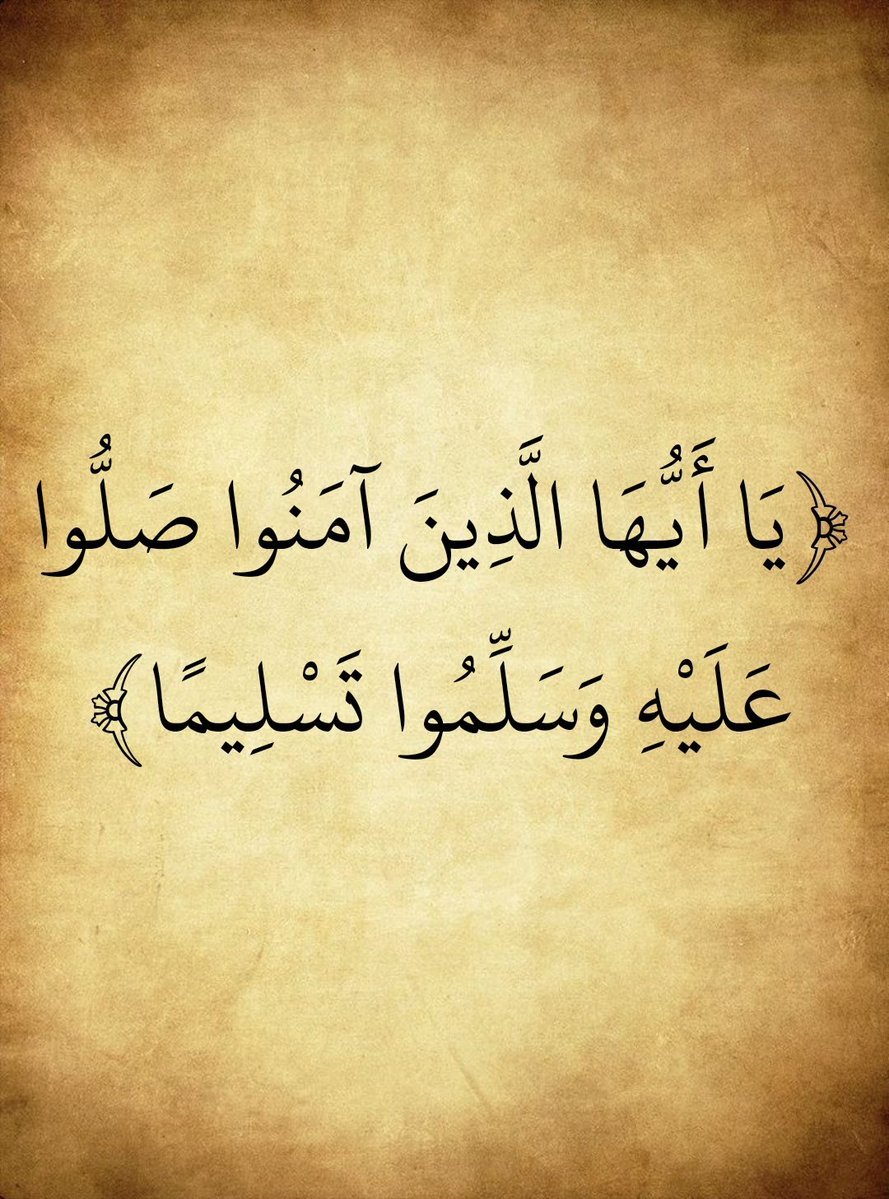 ﴿يَا أَيُّهَا الَّذِينَ آمَنُوا صَلُّوا
عَلَيْهِ وَسَلِّمُوا تَسْلِيمًا﴾